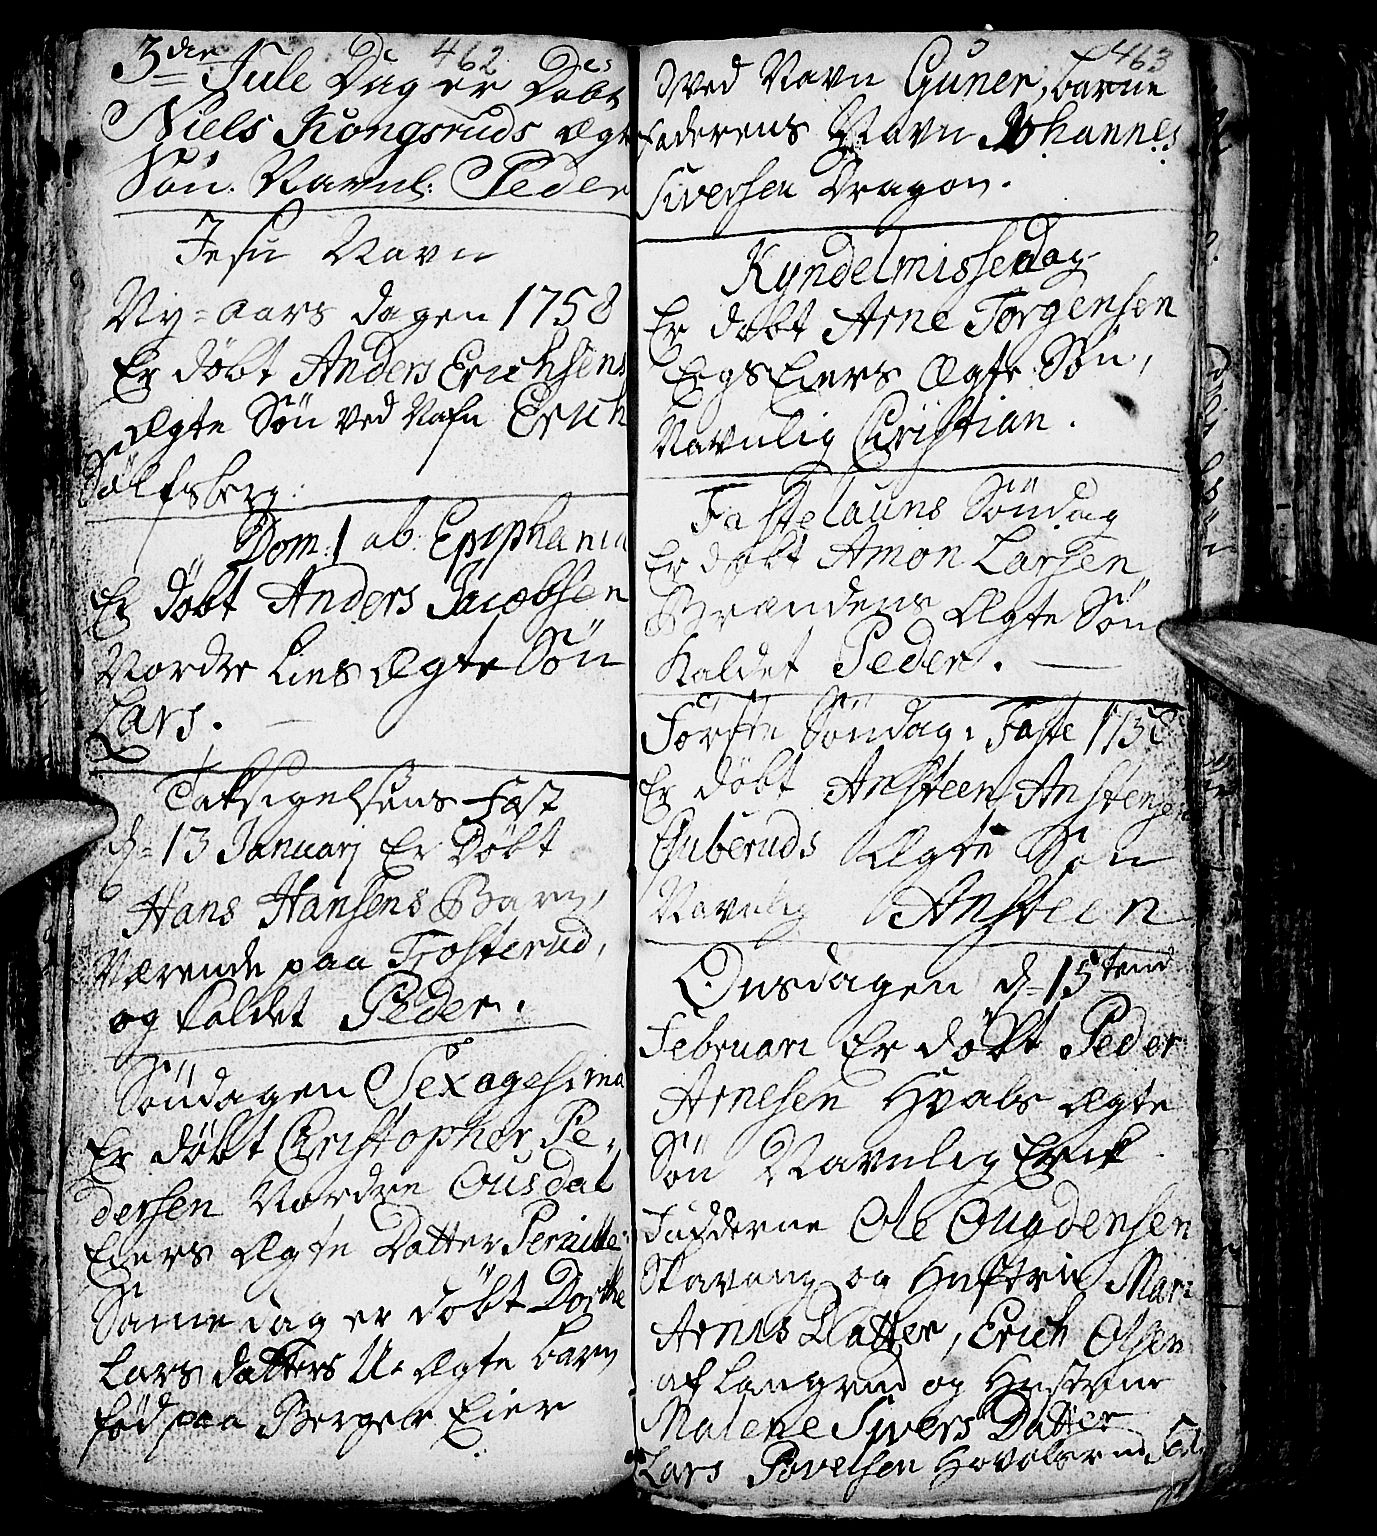 462
3die Jule Dag er Døbt
Niels Kongsruds Ægte
Søn. Navnl: Peder
Jesu Navn
Ny-aars dagen 1758
Er døbt Anders Erichsens
Ægte Søn ved Nafn Erich
Sølfsberg
Dom: 1 ab. Epiphania
Er døbt Anders Jacobsen
Nordre Lies Ægte Søn
Lars.
Taksigelsens Fæst
d. 13 Januarj Er Døbt
Hans Hansens Barn,
Værende paa Trosterud,
og kaldet Peder.
Søndagen Sexagesima
Er døbt Christopher Pe-
dersen Nordre Ousdal
Eiers Ægte Datter Pernille
Samme dag er døbt Dorthe
Lars datters U-Ægte barn
fød paa Berger Eier
463
Ved Navn Guner, barne
faderens Navn Johannes
Siversen Dragon.
Kyndelmissedag
Er døbt Arne Torgensen
Egs Eiers Ægte Søn,
Navnlig Christian.
Fastelauns Søndag
Er døbt Amon Larsen
Brændens Ægte Søn
Kaldet Peder.
Første Søndag i Faste 1758
Er døbt Ansteen Anstensen
Guberuds Ægte Søn
Navnlig Ansteen
Onsdagen d. 15tend
Februari Er døbt Peder
Arnesen Hvals Ægte
Søn Navnlig Erik
Fadderne Ole Ougdensen
Skavang og Hustru Mari
Arnes Datter, Erich Olsen
af Langrud og Hustrue
Malene Sivers Datter
Lars Povelsen